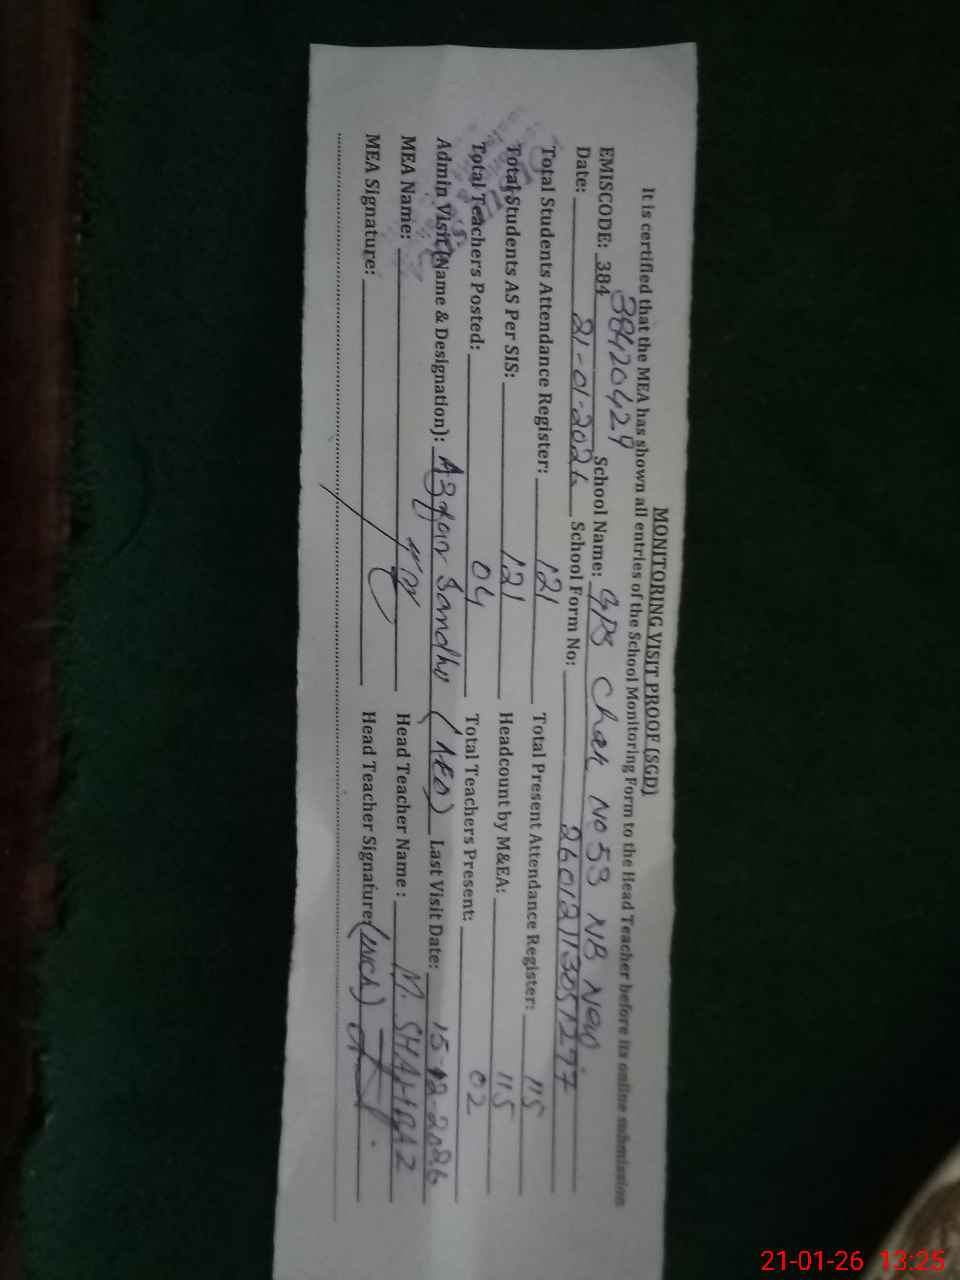 MONITORING VISIT PROOF (SGD)
It is certified that the MEA has shown all entries of the School Monitoring Form to the Head Teacher before its online submission
38420429
EMISCODE: 384 School Name: GPS Chak No 53 NB New
Date: 21-01-2026 School Form No:
Total Students Attendance Register: 121 Total Present Attendance Register: 115
Total Students AS Per SIS: 121 Headcount by M&EA: 115
Total Teachers Posted: 04 Total Teachers Present: 02
Admin Visit (Name & Designation): Sandhu (AEO) Last Visit Date:
MEA Name: Head Teacher Name : M. SHAHBAZ
MEA Signature: Head Teacher Signature:
21-01-26 13:25